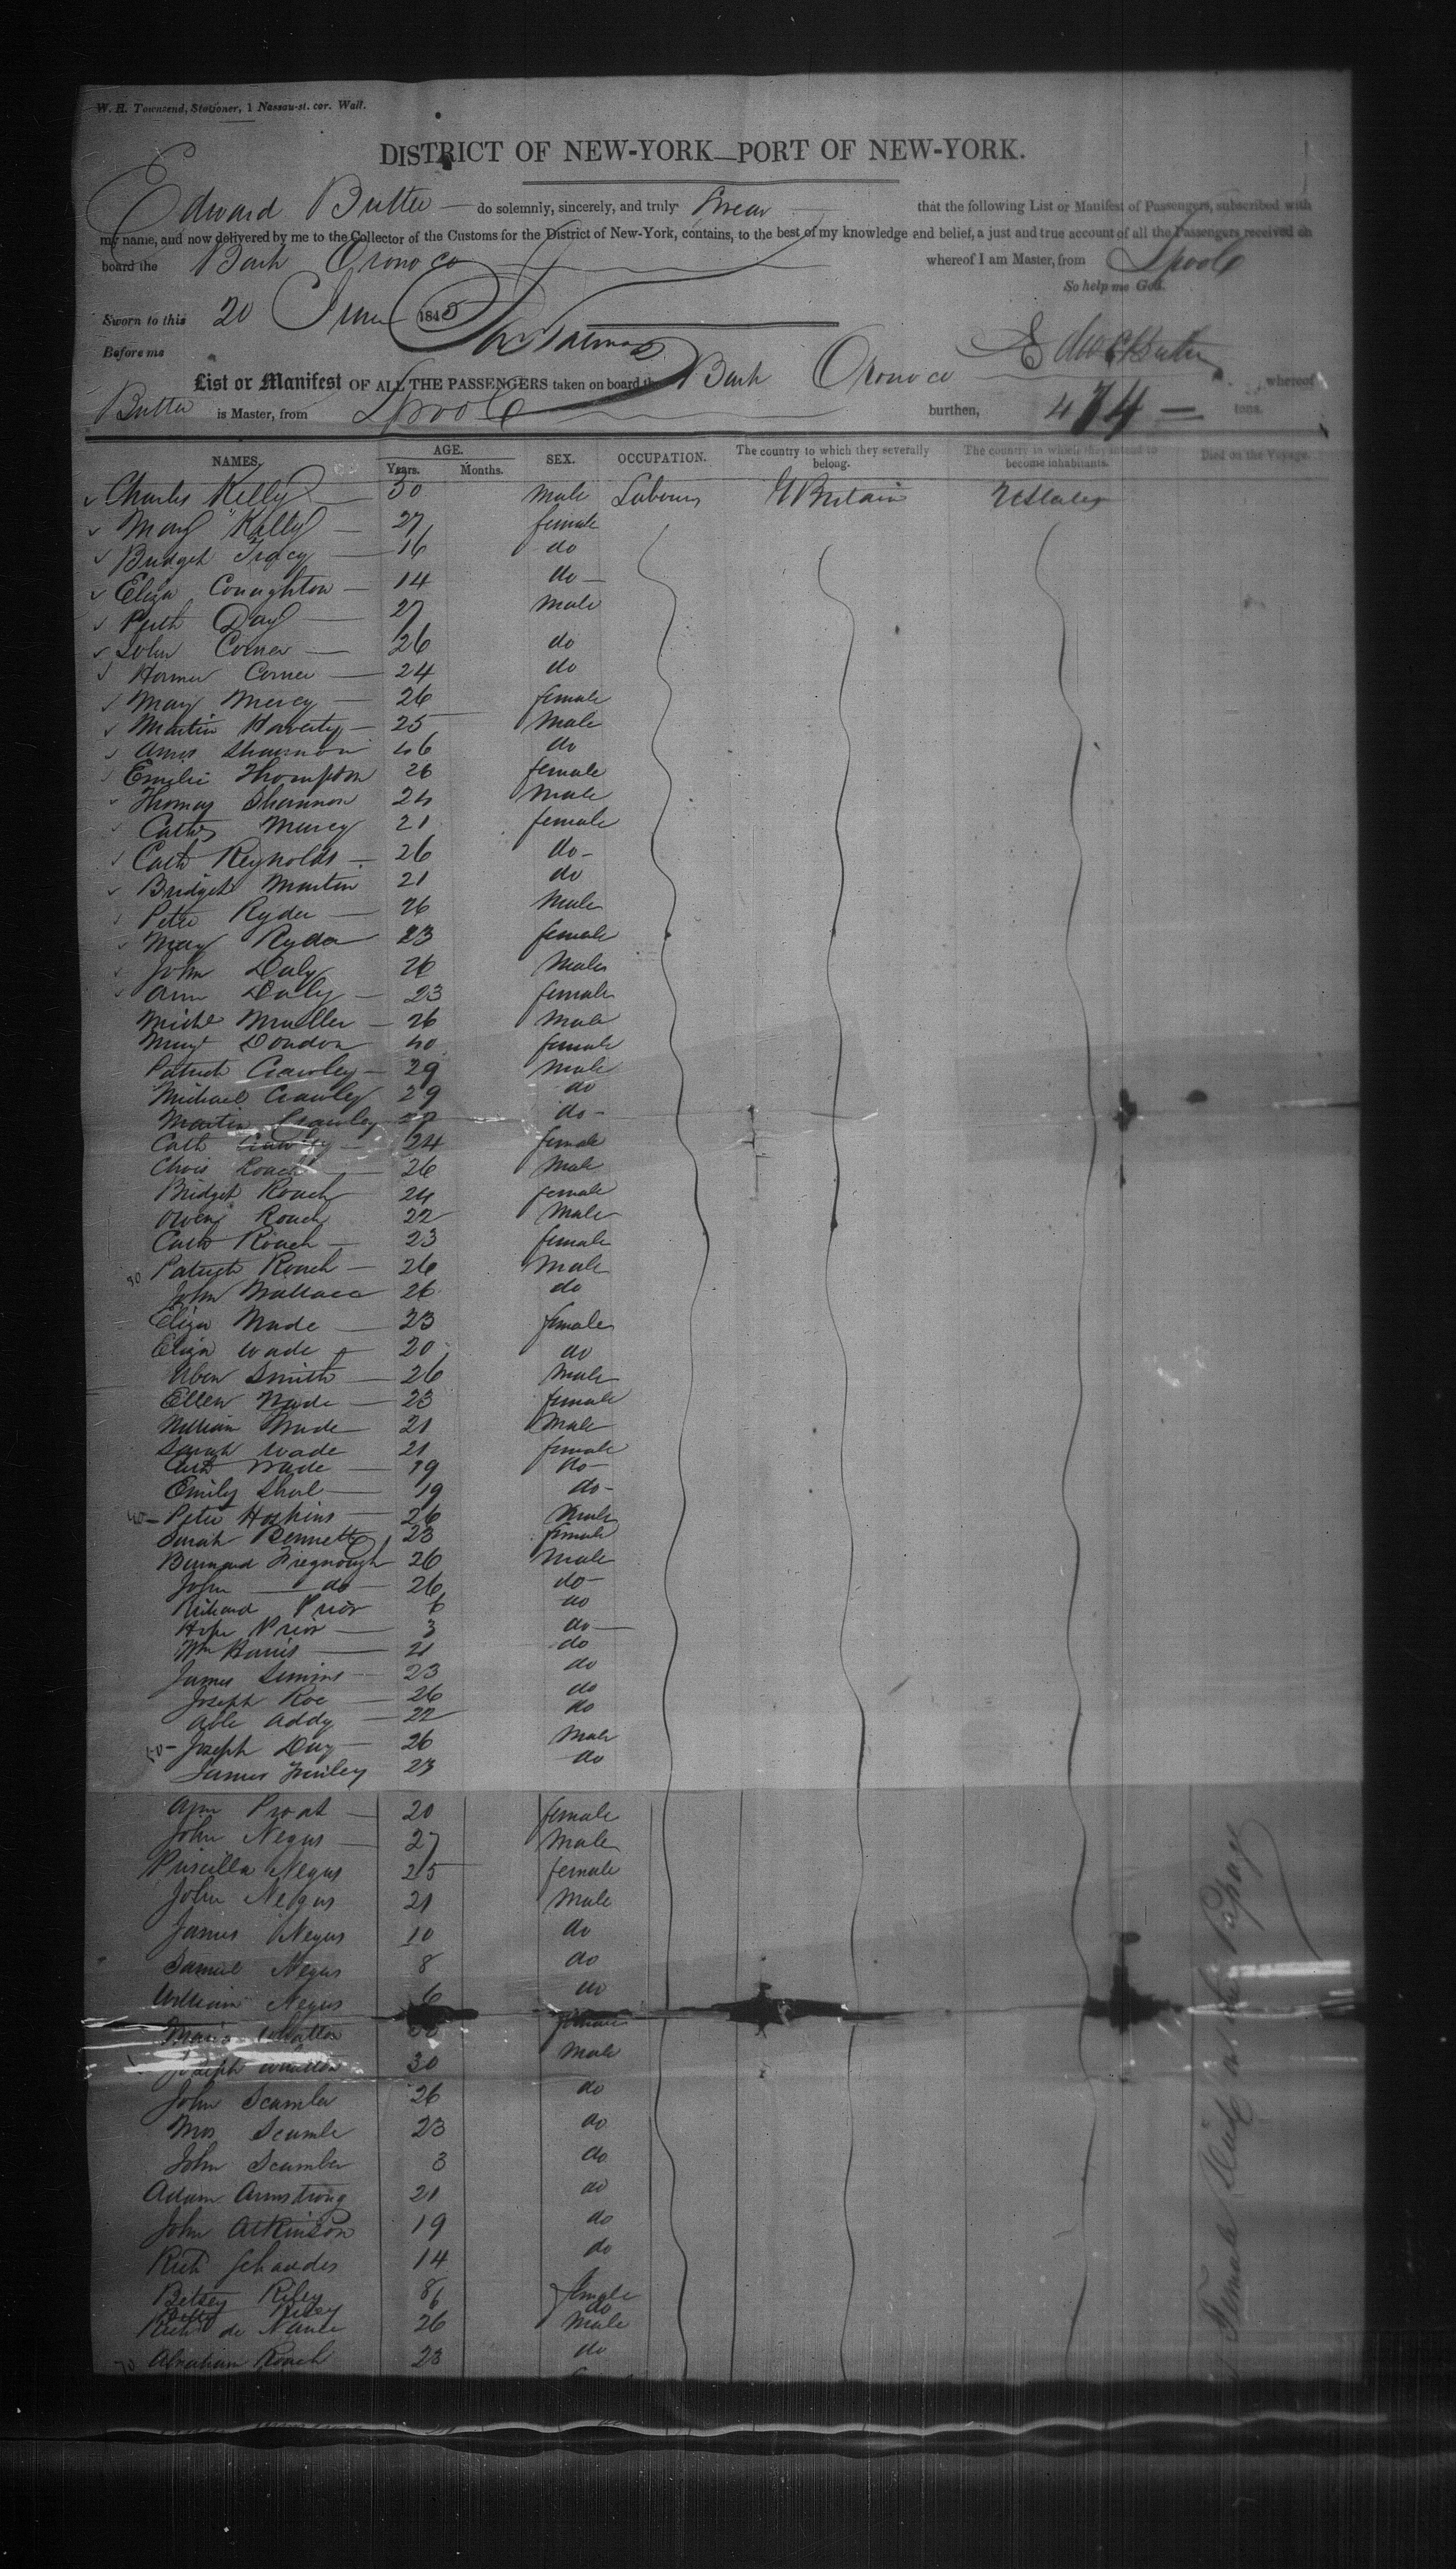 W. H. Townsend, Stationer, 1 Nassau-st. cor. Wall.
DISTRICT OF NEW-YORK—PORT OF NEW-YORK.
Edward Butler do solemnly, sincerely, and truly Swear that the following List or Manifest of Passengers, subscribed with
my name, and now delivered by me to the Collector of the Customs for the District of New-York, contains, to the best of my knowledge and belief, a just and true account of all the Passengers received on
board the Bark Oronoco whereof I am Master, from Lpool
So help me God.
Sworn to this 20 June 184
Before me
List or Manifest OF ALL THE PASSENGERS taken on board the Bark Oronoco whereof
Butler is Master, from Lpool burthen, 474 tons.
NAMES. AGE. Years. Months. SEX. OCCUPATION. The country to which they severally belong. The country in which they intend to become inhabitants. Died on the Voyage.
Charles Kelly 30 Male Labourer G Britain U States
Mary Kelly 27 female
Bridget Tracy 16 do
Eliza Conaughton 14 do
Day 27 Male
John Corner 26 do
Corner 24 do
Mary Mercy 26 female
Martin Haverty 25 Male
Shannon 46 do
Emelie Thompson 26 female
Thomas Shannon 24 Male
Murcy 21 female
Cath Reynolds 26 do
Bridget Martin 21 do
Peter Ryder 26 Male
Mary Ryder 23 female
John Daly 26 Male
Ann Daly 23 female
Michl Mueller 26 Male
Dondon 40 female
Patrick Crawley 29 Male
Michael Crawley 29 do
Martin Crawley 27 do
Cath Crawley 24 female
Chris Roach 26 Male
Bridget Roach 24 female
Owen Roach 22 Male
Cath Roach 23 female
30 Patrick Roach 26 Male
John Wallace 26 do
Eliza Wade 23 female
Eliza Wade 20 do
Smith 26 Male
Ellen Wade 23 female
William Wade 21 Male
Sarah Wade 21 female
Cath Wade 19 do
Emily 19 do
40 Peter Hoskins 26 Male
Sarah Bennett 23 female
Bernard 26 Male
John do 26 do
Richard Prior 6 do
Hope Prior 3 do
Wm Harris 21 do
James Simins 23 do
Joseph Roe 26 do
Able Addy 22 do
50 Joseph Day 26 Male
James Finley 23 do
Ann Prout 20 female
John Negus 27 Male
Priscilla Negus 25 female
John Negus 21 Male
James Negus 10 do
Samuel Negus 8 do
William Negus 6 do
female
Joseph 30 Male
John Scamber 26 do
Mos Scamber 23 do
John Scamber 3 do
Adam Armstrong 21 do
John Atkinson 19 do
Rich 14 do
Betsey Riley 8 female
Riley 6 do
26 Male
70 Abraham Roach 23 do
Female